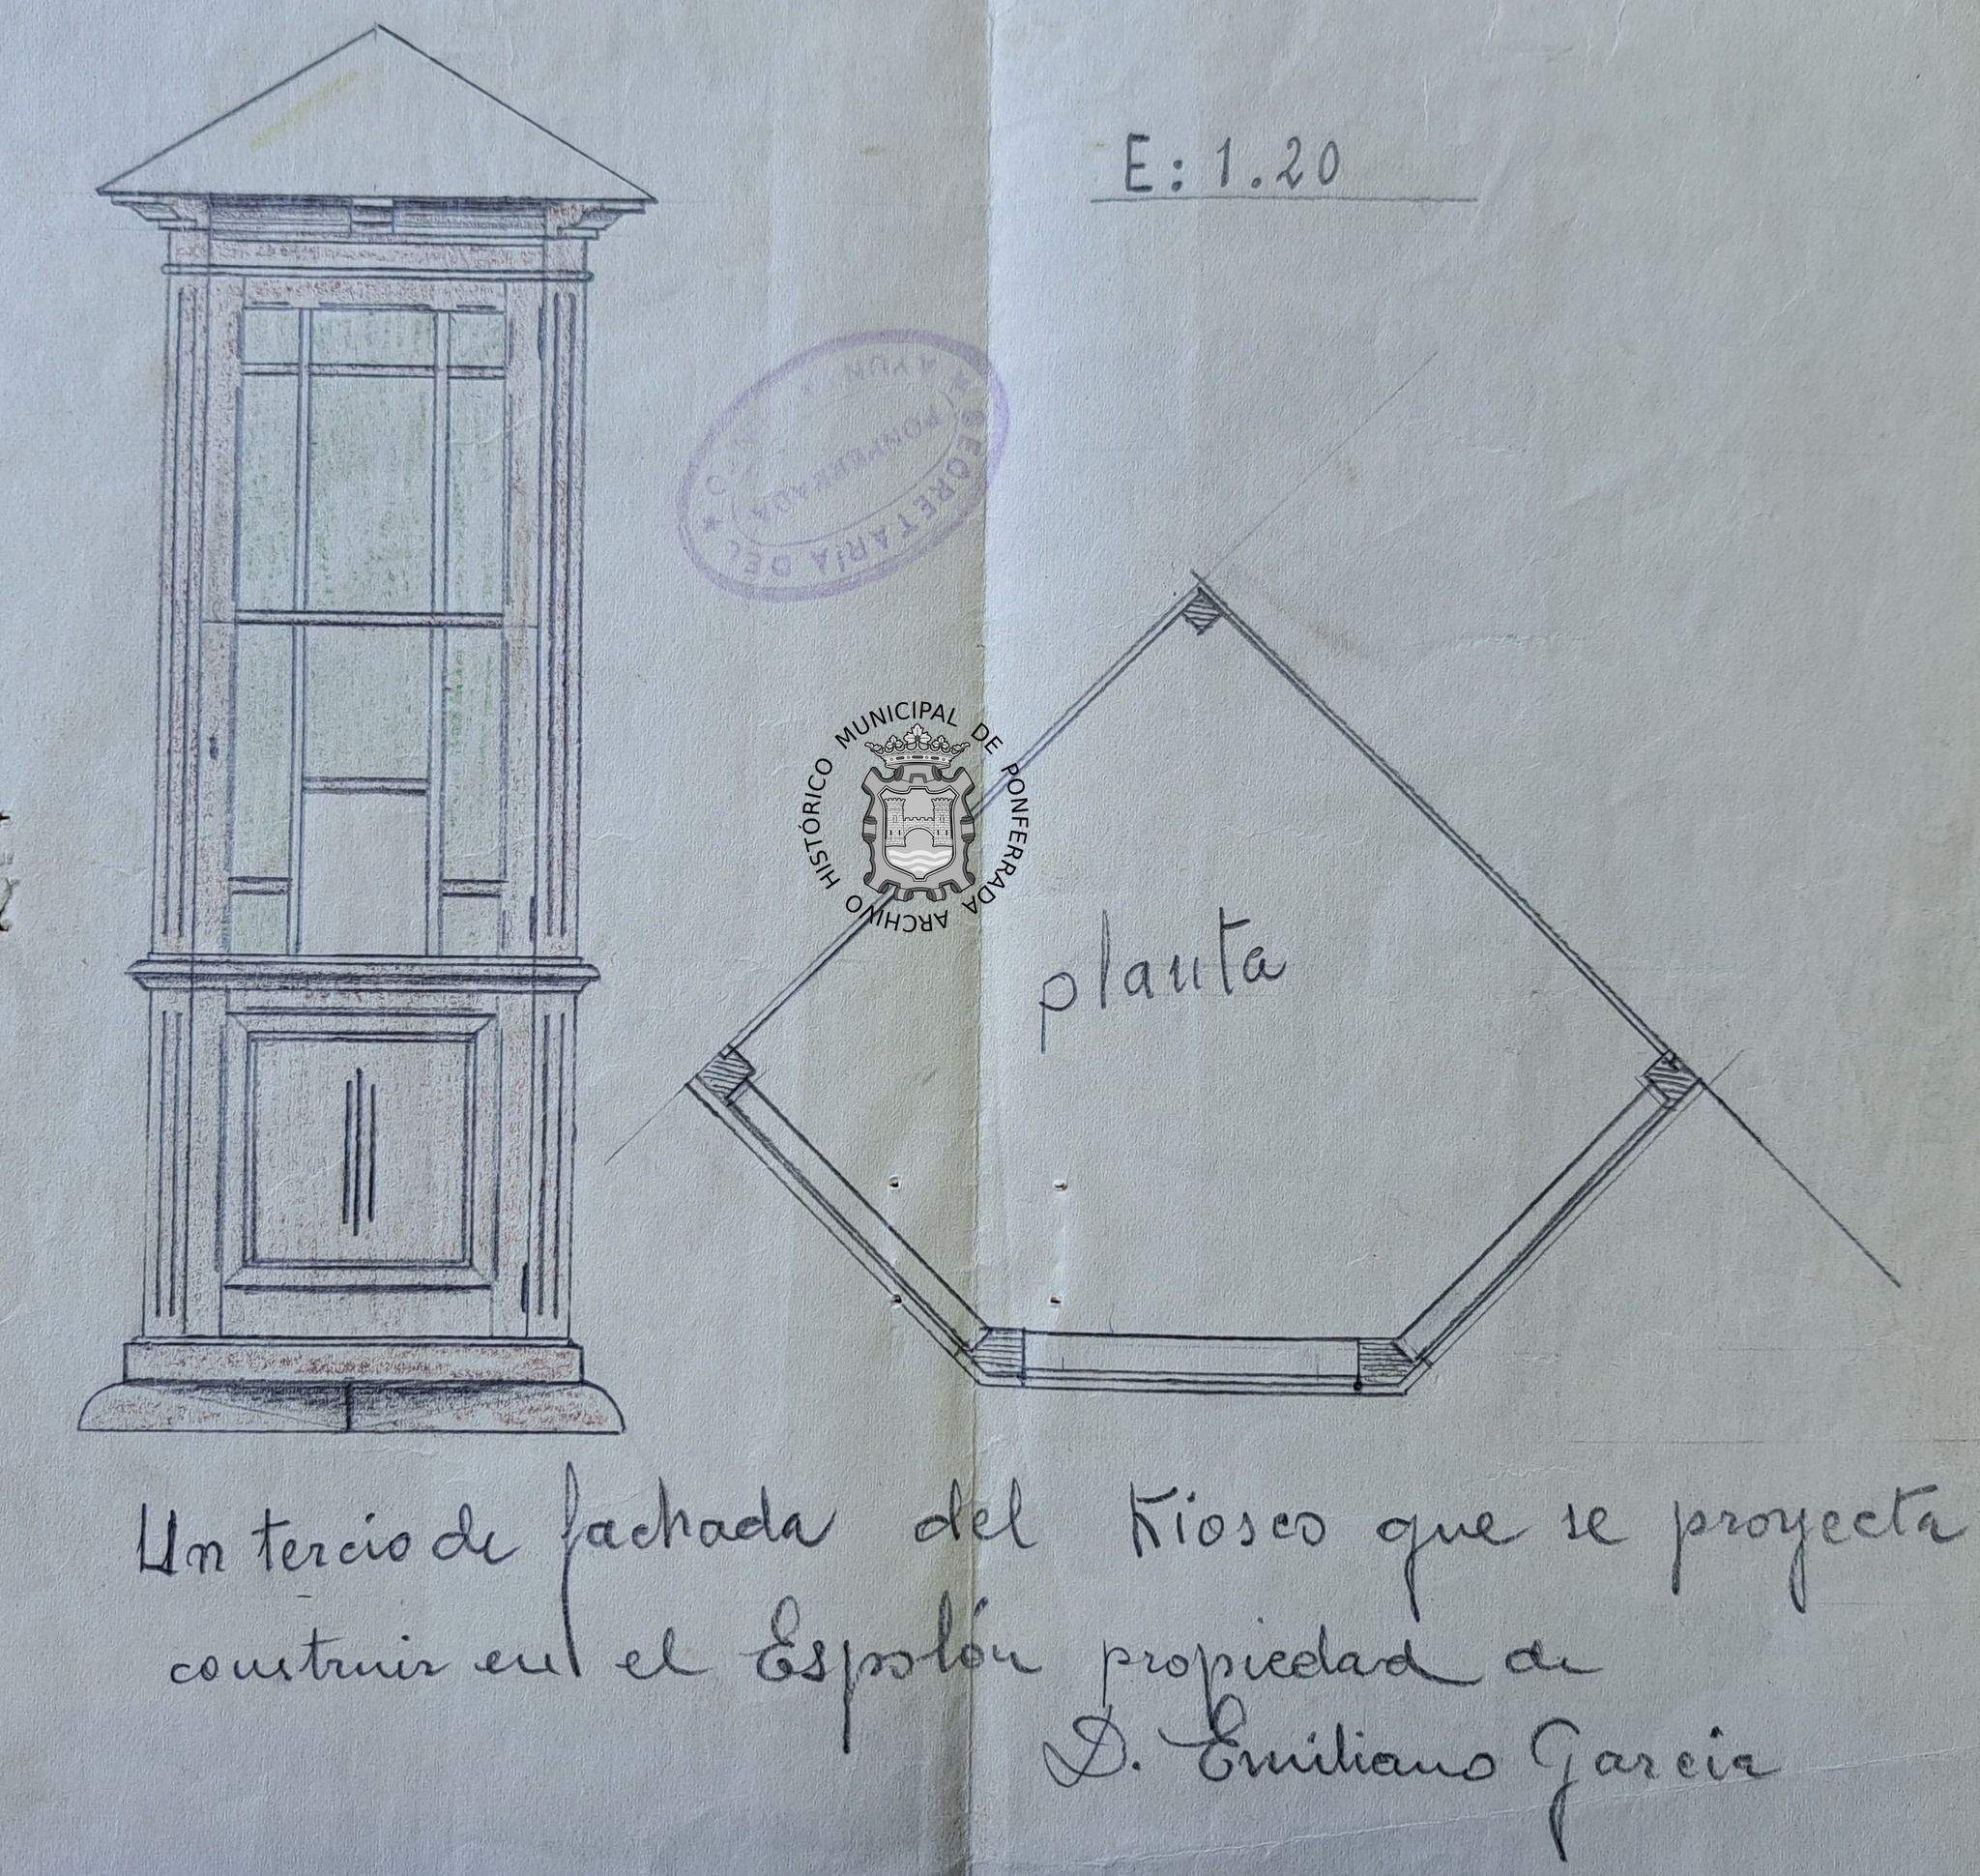 E: 1.20
* SECRETARÍA DEL *
AYUN
(PONFERRADA)
ARCHIVO HISTÓRICO MUNICIPAL DE PONFERRADA
planta
Un tercio de fachada del Kiosco que se proyecta
construir en el Espolón propiedad de
D. Emiliano Garcia